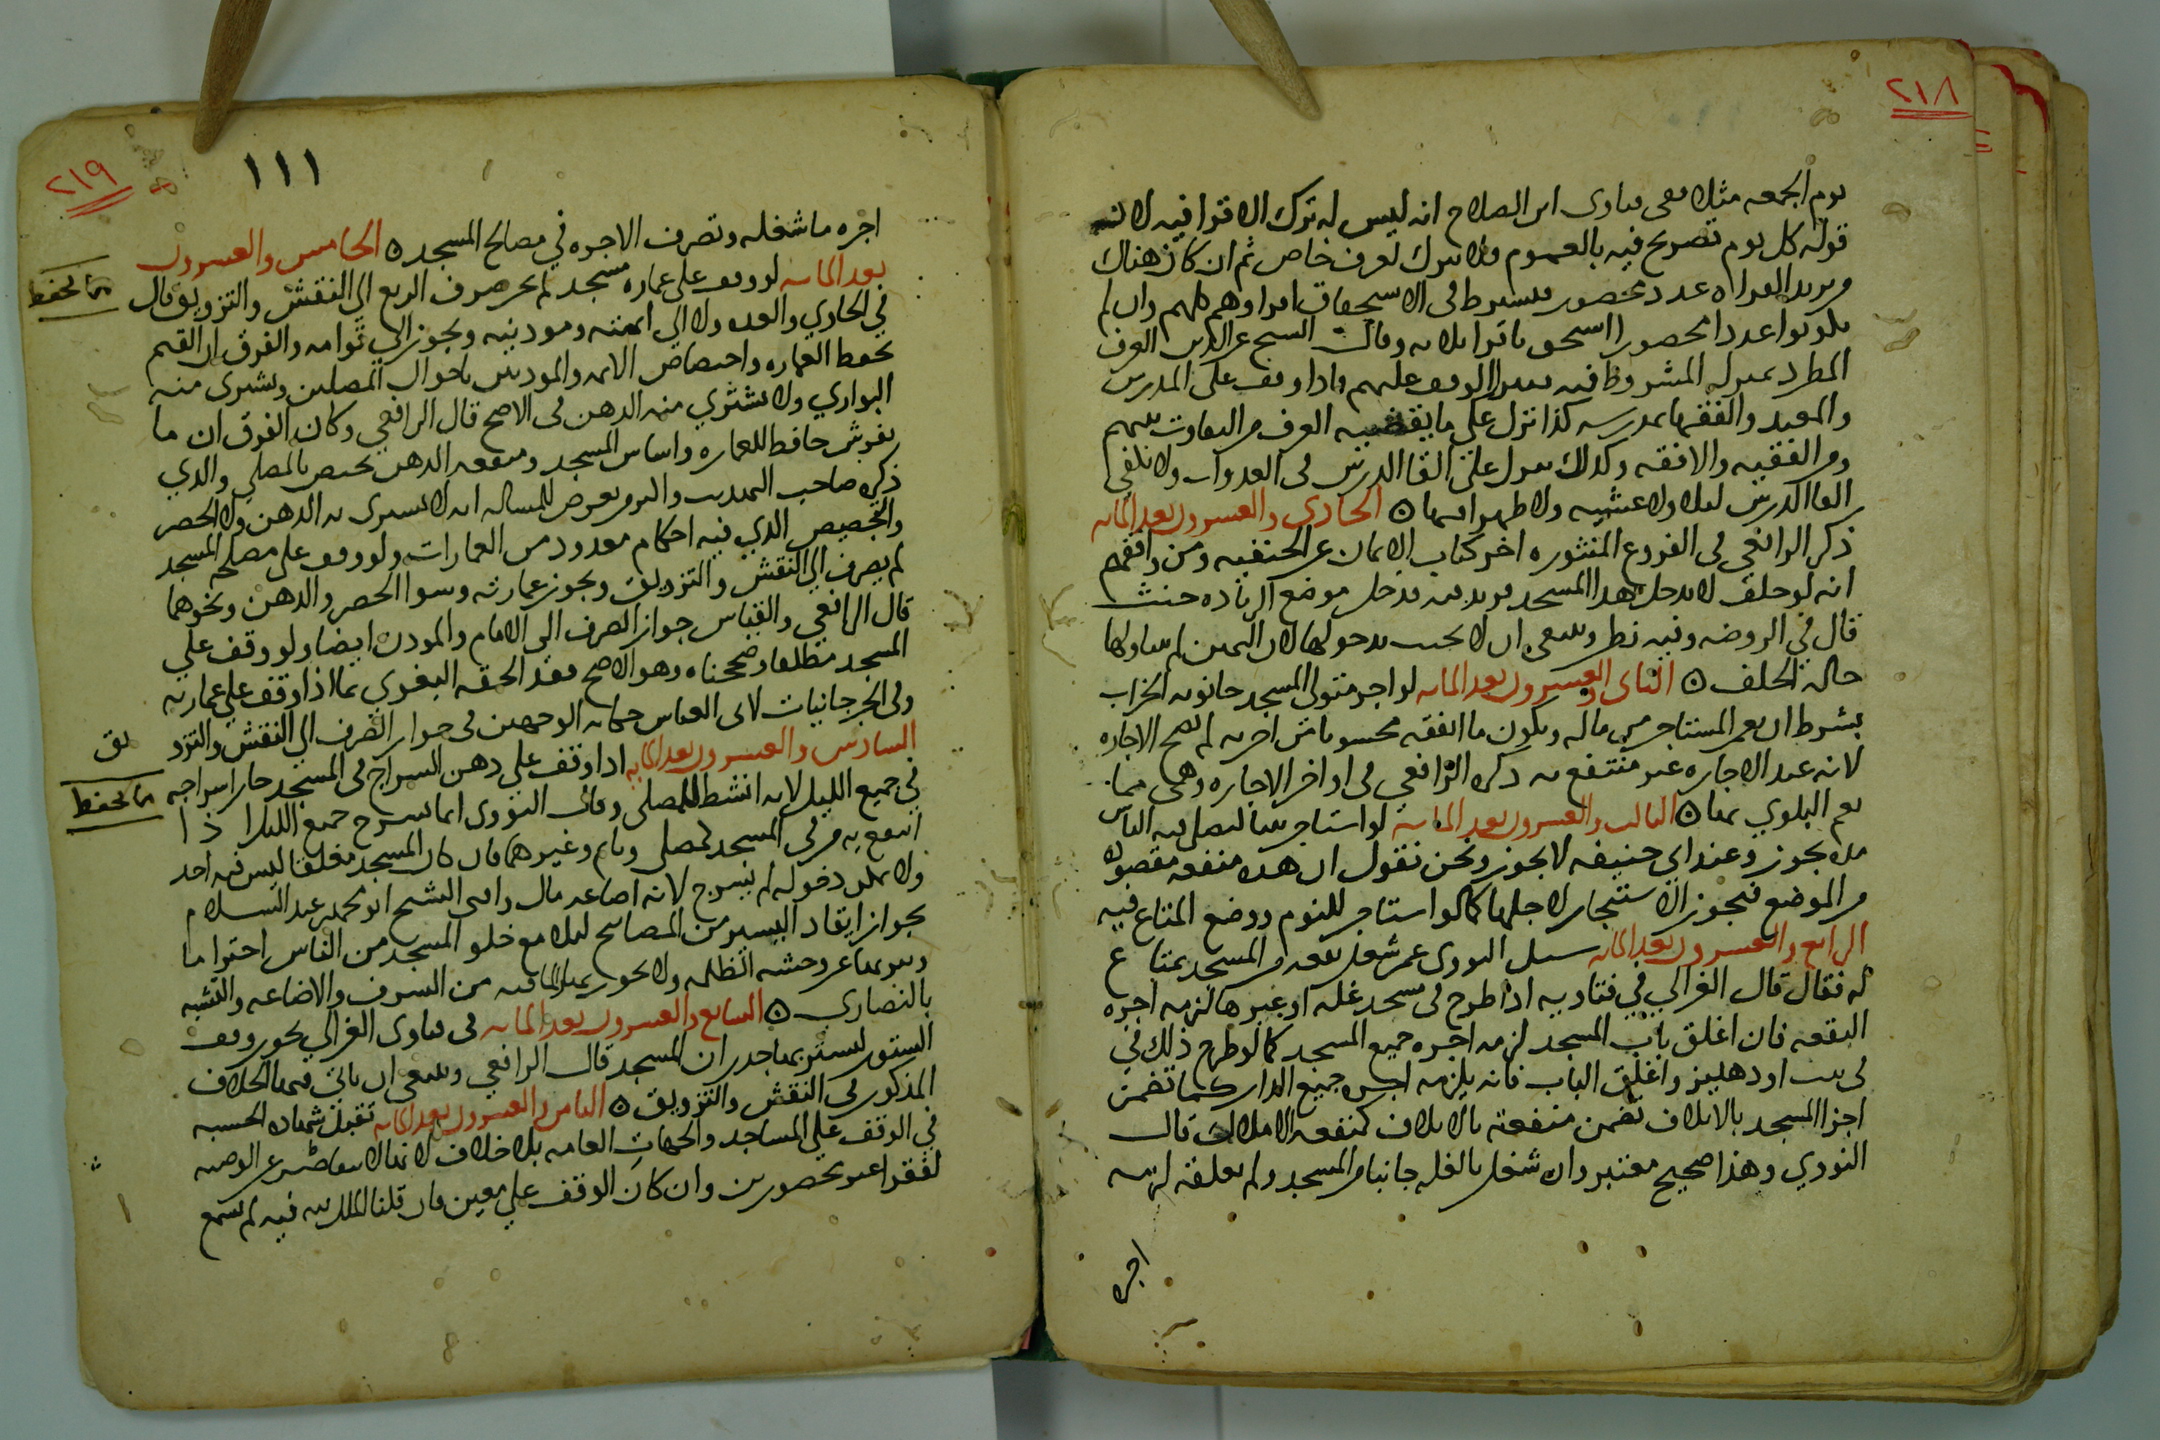 ٢١٨
يوم الجمعه مثلا ففى فتاوى ابن الصلاح انه ليس له ترك الاقرا فيه لانه
قوله كل يوم تصريح فيه بالعموم فلا يترك لعرف خاص ثم ان كان هناك
من يريد القراه عدد محصور فيشترط فى الاستحقاق اقراوهم كلهم وان لم
يكونوا عددا محصورا استحق باقرا ثلاثه وقال الشيخ عز الدين العرف
المطرد بمنزله المشروط فينزل الوقف عليهم فاذا وقف على المدرس
والمعيد والفقها بمدرسه كذا نزل على ما يقتضيه العرف من التفاوت بينهم
ومن الفقيه والافقه وكذلك ينزل على القا الدرس فى الغدوات ولا يكفى
القا الدرس ليلا ولا عشيه ولا ظهرا فيها ۞ الحادى والعشرون بعد المايه
ذكر الرافعي فى الفروع المنثوره اخر كتاب الايمان عن الحنفيه ومن وافقهم
انه لو حلف لا يدخل هذا المسجد فزيد فيه فدخل موضع الزياده حنث
قال في الروضه وفيه نظر وينبغى ان لا يحنث بدخولها لان اليمين لم يتناولها
حاله الحلف ۞ الثانى والعشرون بعد المايه لو اجر متولى المسجد حانوته الخراب
بشرط ان يعمر المستاجر من ماله ويكون ما انفقه محسوبا من اجرته لم تصح الاجاره
لانه عند الاجاره غير منتفع به ذكره الرافعي فى اواخر الاجاره وهي مما
تعم البلوي بها ۞ الثالث والعشرون بعد المايه لو استاجر بيتا ليصلى فيه الناس
مده يجوز وعند ابى حنيفه لا يجوز ونحن نقول ان هذه منفعه مقصوده
من الموضع فيجوز الاستيجار لاجلها كما لو استاجر للنوم ووضع المتاع فيه
الرابع والعشرون بعد المايه سيل النووى عمن شغل بقعه من المسجد بمتاع
له فقال قال الغزالي في فتاويه اذا طرح فى مسجد غله او غيرها لزمه اجره
البقعه فان اغلق باب المسجد لزمه اجره جميع المسجد كما لو طرح ذلك في
فى بيت او دهليز واغلق الباب فانه يلزمه اجره جميع الدار كما تضمن
اجزا المسجد بالاتلاف تضمن منفعته بالاتلاف كمنفعه الاملاك قال
النووي وهذا صحيح معتبر وان شغل بالغله جانبا من المسجد ولم يغلقه لزمه
اجره
٢١٩
١١١
اجره ما شغله وتصرف الاجره في مصالح المسجد ۞ الخامس والعشرون
بعد المايه لو وقف على عماره مسجد لم يجز صرف الريع الى النقش والتزويق قال
في الحاوي والعده ولا الى ايمته وموذنيه ويجوز الي قوامه والفرق ان القيم
يحفظ العماره واختصاص الايمه والموذنين باحوال المصلين ويشترى منه
البواري ولا يشتري منه الدهن فى الاصح قال الرافعي وكان الفرق ان ما
يفرش حافظ للعماره واساس المسجد ومنفعه الدهن تختص بالمصلي والذي
ذكره صاحب التهذيب والنووى تعرض للمساله انه لا يشترى به الدهن ولا الحصر
والتجصيص الذي فيه احكام معدود من العمارات ولو وقف على مصلحه المسجد
لم يصرف الى النقش والتزويق ويجوز عمارته وسوا الحصر والدهن ونحوهما
قال الرافعي والقياس جواز الصرف الى الامام والموذن ايضا ولو وقف علي
المسجد مطلقا وصححناه وهو الاصح فقد الحقه البغوي بما اذا وقف علي عمارته
وفى الجرجانيات لابى العباس حكايه الوجهين فى جواز الصرف الى النقش والتزو
يق
السادس والعشرون بعد المايه اذا وقف على دهن السراج فى المسجد جاز اسراجه
في جميع الليل لانه انشط للمصلى وقال النووى انما يسرج جميع الليل اذا
انتفع به من فى المسجد كمصلى ونايم وغيرهما فان كان المسجد مغلقا ليس فيه احد
ولا يمكن دخوله لم يسرج لانه اضاعه مال وافتى الشيخ ابو محمد بن عبد السلام
بجواز ايقاد اليسير من المصابيح ليلا مع خلو المسجد من الناس احتراما
وتنزيها عن وحشه الظلمه ولا يجوز نهارا لما فيه من السرف والاضاعه والتشبه
بالنصارى ۞ السابع والعشرون بعد المايه فى فتاوى الغزالي يجوز وقف
الستور لستر بها جدران المسجد قال الرافعي وينبغى ان ياتى فيها الخلاف
المذكور فى النقش والتزويق ۞ الثامن والعشرون بعد المايه تقبل شهاده الحسبه
في الوقف على المساجد والجهات العامه بلا خلاف
لفقرا غير محصورين وان كان الوقف علي معين فان قلنا الملك لله فيه لم تسمع